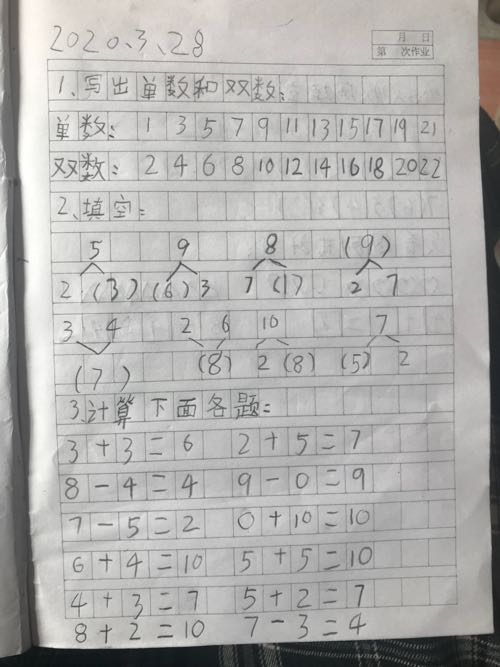 2020.3.28
月 日
第 次作业
1.写出单数和双数:
单数: 1 3 5 7 9 11 13 15 17 19 21
双数: 2 4 6 8 10 12 14 16 18 20 22
2.填空:
5 9 8 (9)
2 (3) (6) 3 7 (1) 2 7
3 4 2 6 10 7
(7) (8) 2 (8) (5) 2
3.计算下面各题:
3+3=6 2+5=7
8-4=4 9-0=9
7-5=2 0+10=10
6+4=10 5+5=10
4+3=7 5+2=7
8+2=10 7-3=4